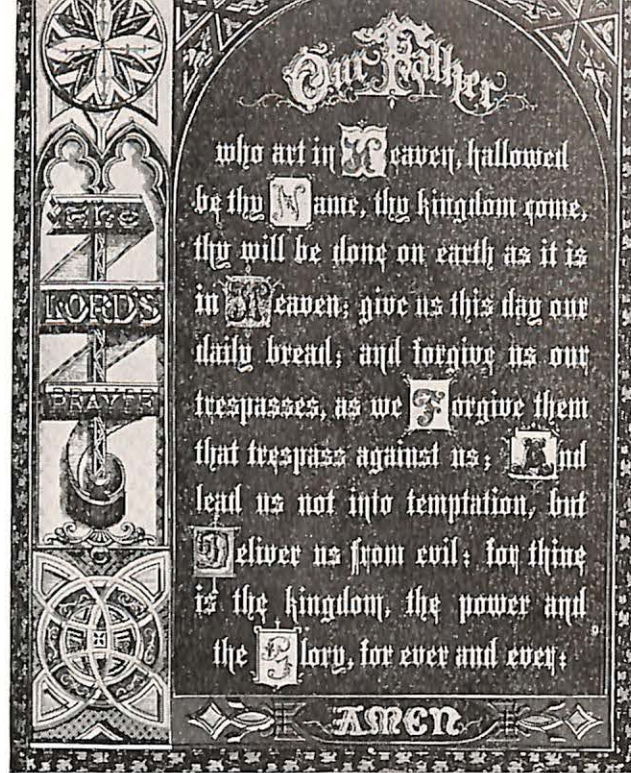 The
LORD'S
PRAYER
Our Father
who art in Heaven, hallowed
be thy Name, thy kingdom come,
thy will be done on earth as it is
in Heaven; give us this day our
daily bread; and forgive us our
trespasses, as we Forgive them
that trespass against us; And
lead us not into temptation, but
Deliver us from evil: for thine
is the kingdom, the power and
the Glory, for ever and ever:
AMEN